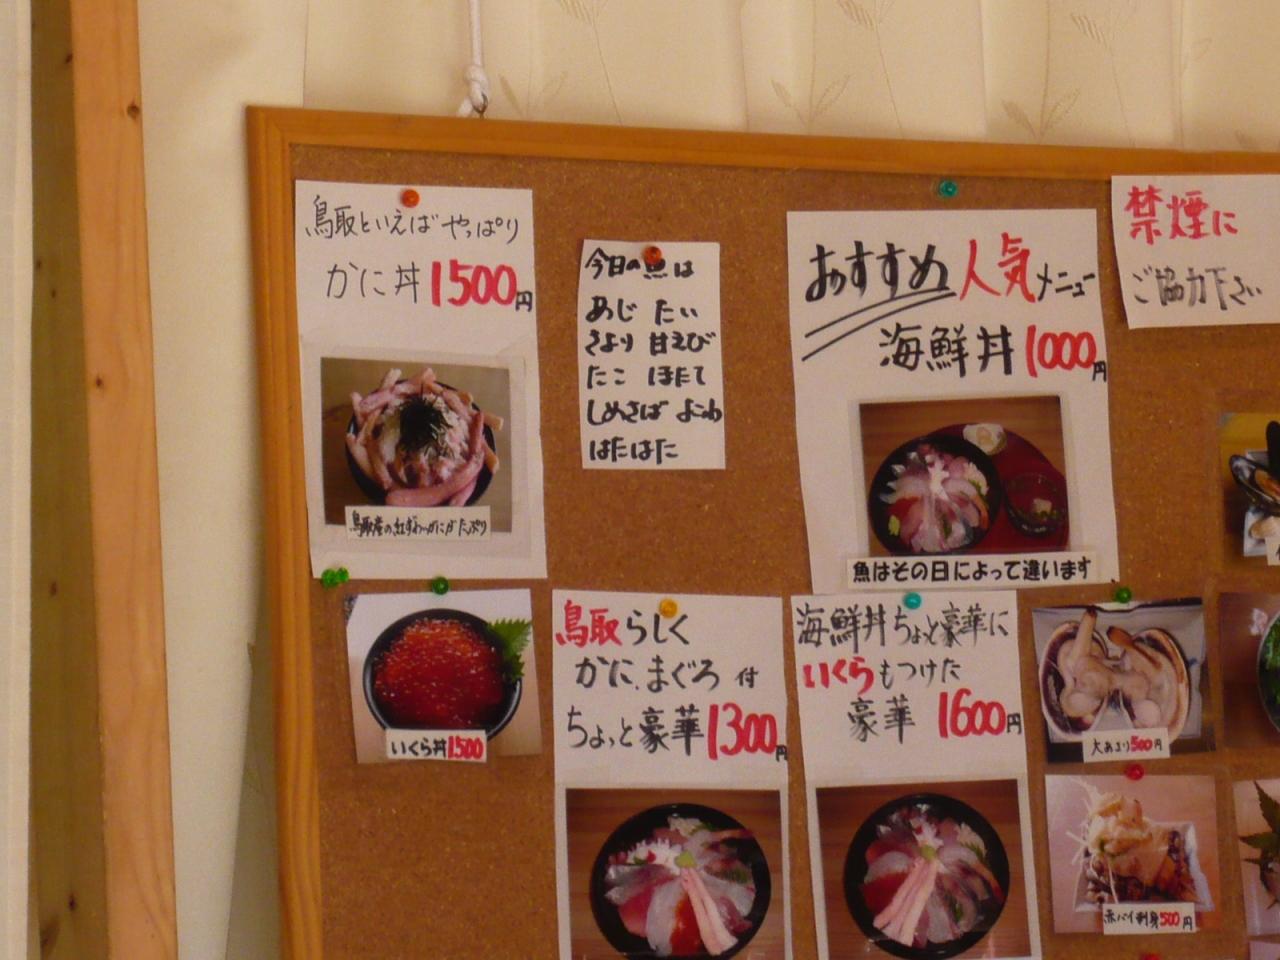 鳥取といえば やっぱり
かに丼 1500円
鳥取産の紅ずわいがにがたっぷり
今日の魚は
あじ たい
さより 甘えび
たこ ほたて
しめさば よこわ
はたはた
おすすめ人気メニュー
海鮮丼1000円
魚はその日によって違います
禁煙に
ご協力下さい
いくら丼1500
鳥取らしく
かに、まぐろ 付
ちょっと豪華1300円
海鮮丼ちょっと豪華に
いくらもつけた
豪華 1600円
大あさり500円
赤バイ刺身500円